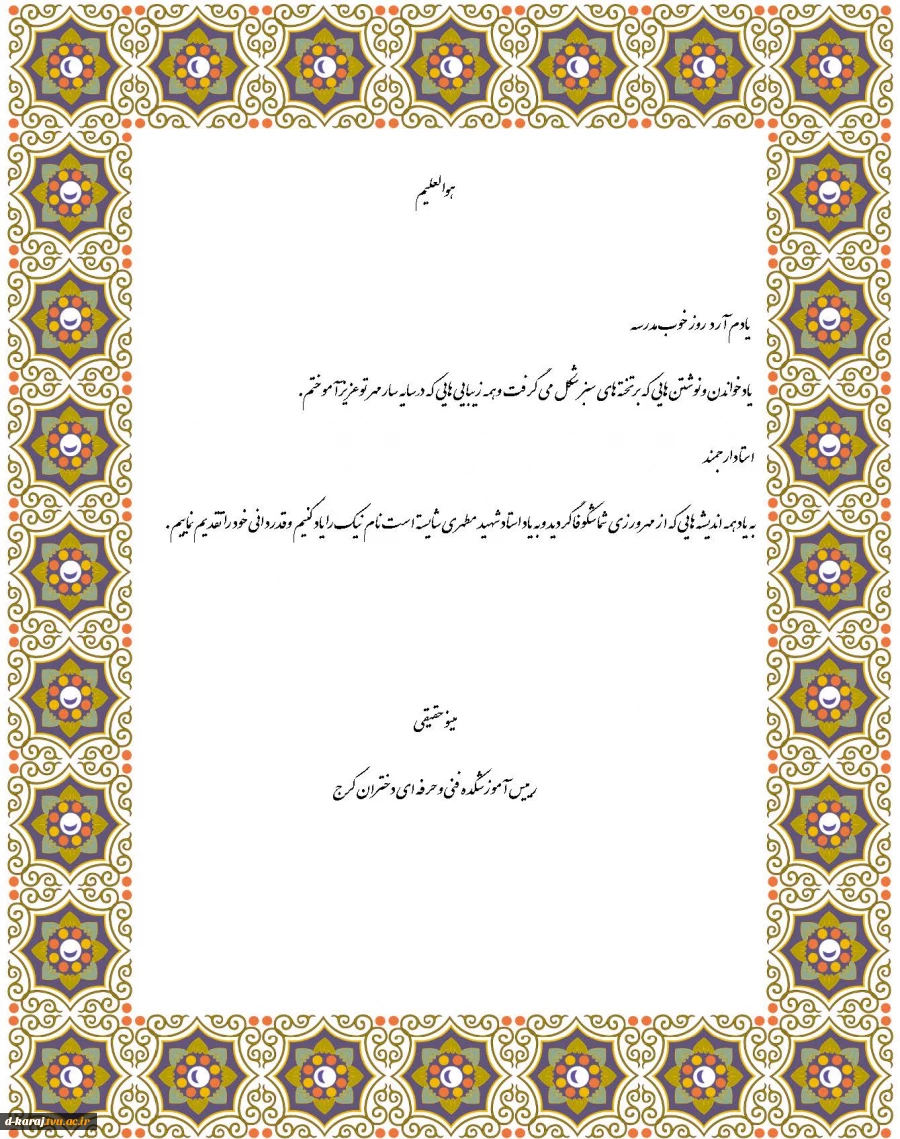 هوالعلیم
یادم آرد روز خوب مدرسه
یاد خواندن و نوشتن هایی که بر تخته های سبز شکل می گرفت و همه زیبایی هایی که در سایه سار مهر تو عزیز آموختم.
استاد ارجمند
به یاد همه اندیشه هایی که از مهرورزی شما شکوفا گردید و به یاد استاد شهید مطهری شایسته است نام نیک را یاد کنیم و قدردانی خود را تقدیم نماییم.
مینو حقیقی
رییس آموزشکده فنی و حرفه ای دختران کرج
d-karaj.tvu.ac.ir